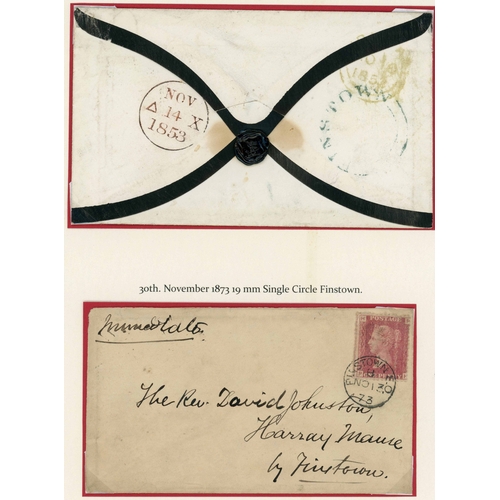 NOV
14
A X
1853
FINSTOWN
30th. November 1873 19 mm Single Circle Finstown.
Immediate.
POSTAGE
FINSTOWN N.O
B
NO 30
73
The Rev. David Johnston,
Harray Manse
by Finstown.